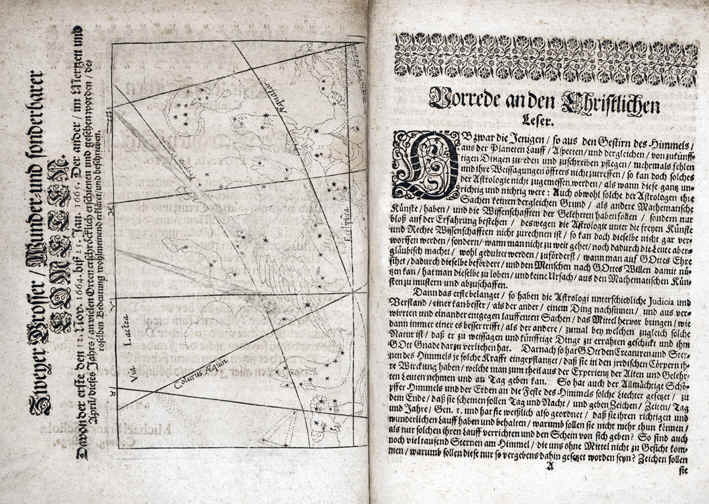 Zweyer Grosser / Wunder und sonderbarer
COMETEN.
Davon der erste den 12. Nov. 1664. biß 21. Jan. 1665. Der ander / im Mertzen und
April / dieses Jahrs / an vielen Orten erschröcklich erschienen und gesehen worden / des
roselben Bedeutung wohlmeinend erkläret und beschrieben.
Æquator
Ecliptica
Via Lactea
Colurus Æquin
Vorrede an den Christlichen
Leser.
OB zwar die Jenigen / so aus den Gestirn des Himmels /
aus der Planeten Lauff / Aspecten / und dergleichen / von zukünff-
tigen Dingen zu reden und zuschreiben pflegen / mehrmals fehlen
und ihre Weissagungen öffters nicht zutreffen / so kan doch solches
der Astrologie nicht zugemessen werden / als wann diese gantz un-
richtig und nichtig were: Auch obwohl solche der Astrologen ihre
Sachen keinen dergleichen Grund / als andere Mathematische
Künste / haben / und die Wissenschafften der Gelehrten haben sollen / sondern nur
bloß auf der Erfahrung bestehen / deswegen die Astrologie unter die freyen Künste
und Rechte Wissenschafften nicht zurechnen ist / so kan doch dieselbe nicht gar ver-
worffen werden / sondern / wann man nicht zu weit gehet / noch dadurch die Leute aber-
gläubisch macht / wohl gedultet werden / zuförderst / wann man auf GOttes Ehre
sihet / dadurch dieselbe befördere / und den Menschen nach GOttes Willen damit nü-
tzen kan / hat man dieselbe zu loben / und keine Ursach / aus den Mathematischen Kün-
sten zu mustern und abzuschaffen.
Dann das erste belanget / so haben die Astrologi unterschiedliche Judicia und
Verstand / einer fan besser / als der ander / einem Ding nachsinnen / und aus ver-
wirrten und einander entgegen lauffenten Sachen / das Mittel hervor bringen / wie
dann immer einer es besser trifft / als der andere / zumal bey welchen zugleich solche
Natur ist / daß er zu weissagen und künfftige Dinge zu errathen geschickt und ihm
GOtt Gnade darzu verliehen hat. Darnach so hat GOtt den Creaturen und Ster-
nen des Himmels je solche Krafft eingepflantzet / daß sie in den irrdischen Cörpern ih-
re Wirckung haben / welche man zum theil aus der Experienz der Alten und Gelehr-
ten Leuten nehmen und an Tag geben kan. So hat auch der Allmächtige Schö-
pffer Himmels und der Erden an die Feste des Himmels solche Liechter gesetzet / zu
dem Ende / daß sie scheinen sollen Tag und Nacht / und geben Zeichen / Zeiten / Tag
und Jahre / Gen. 1. und hat sie weißlich also geordnet / daß sie ihren richtigen und
wunderlichen Lauff haben und behalten / warumb sollen sie nicht mehr thun können /
als nur solchen ihren Lauff verrichten und den Schein von sich geben? So sind auch
noch viel tausend Sternen am Himmel / die uns ohne Mittel nicht zu Gesicht kom-
men / warumb sollen diese nur so vergebens dahin gesetzt worden seyn? Zeichen sollen
A
sie